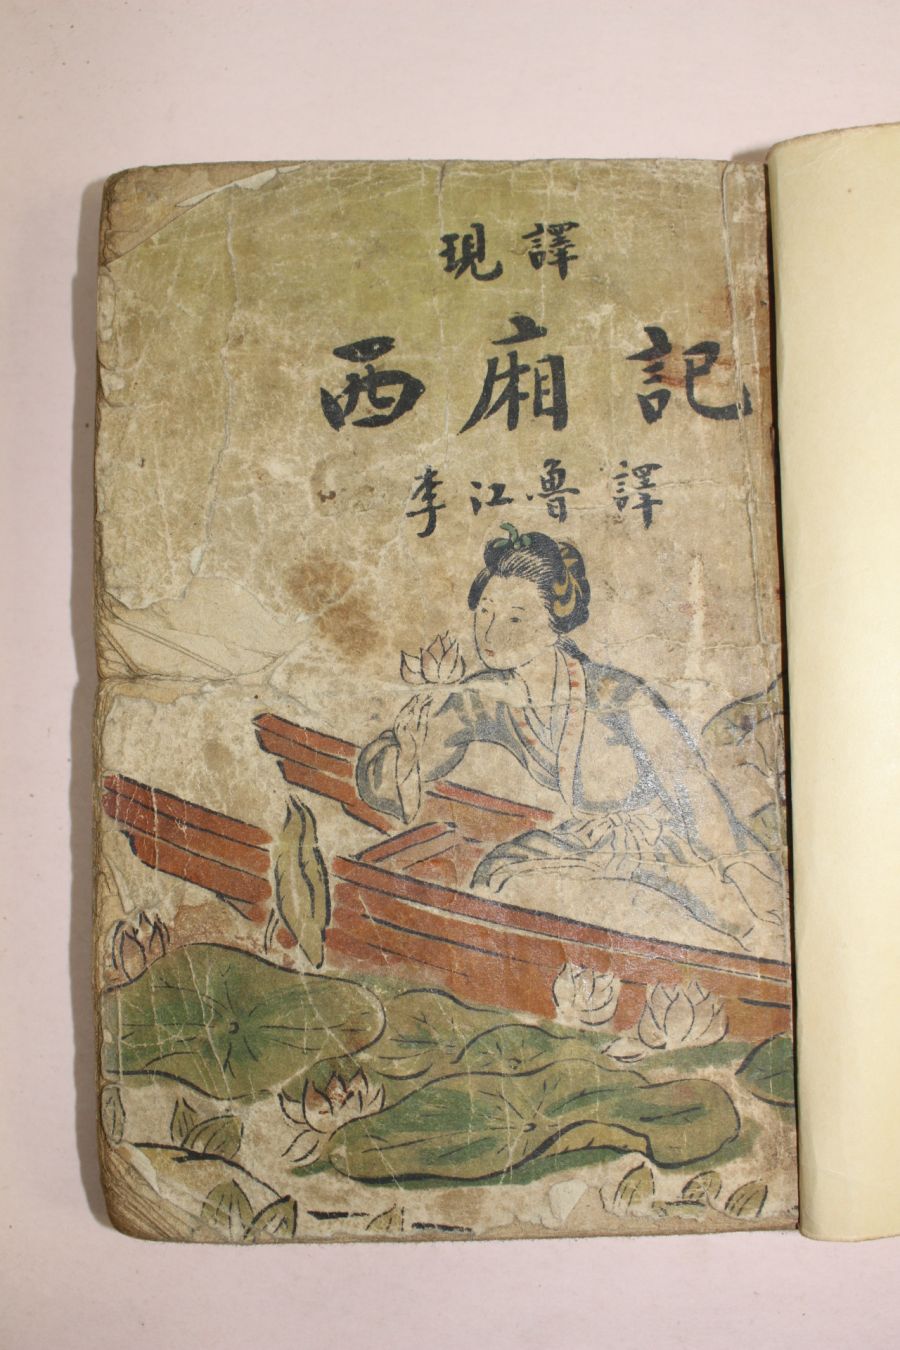 現譯
西廂記
李江魯 譯